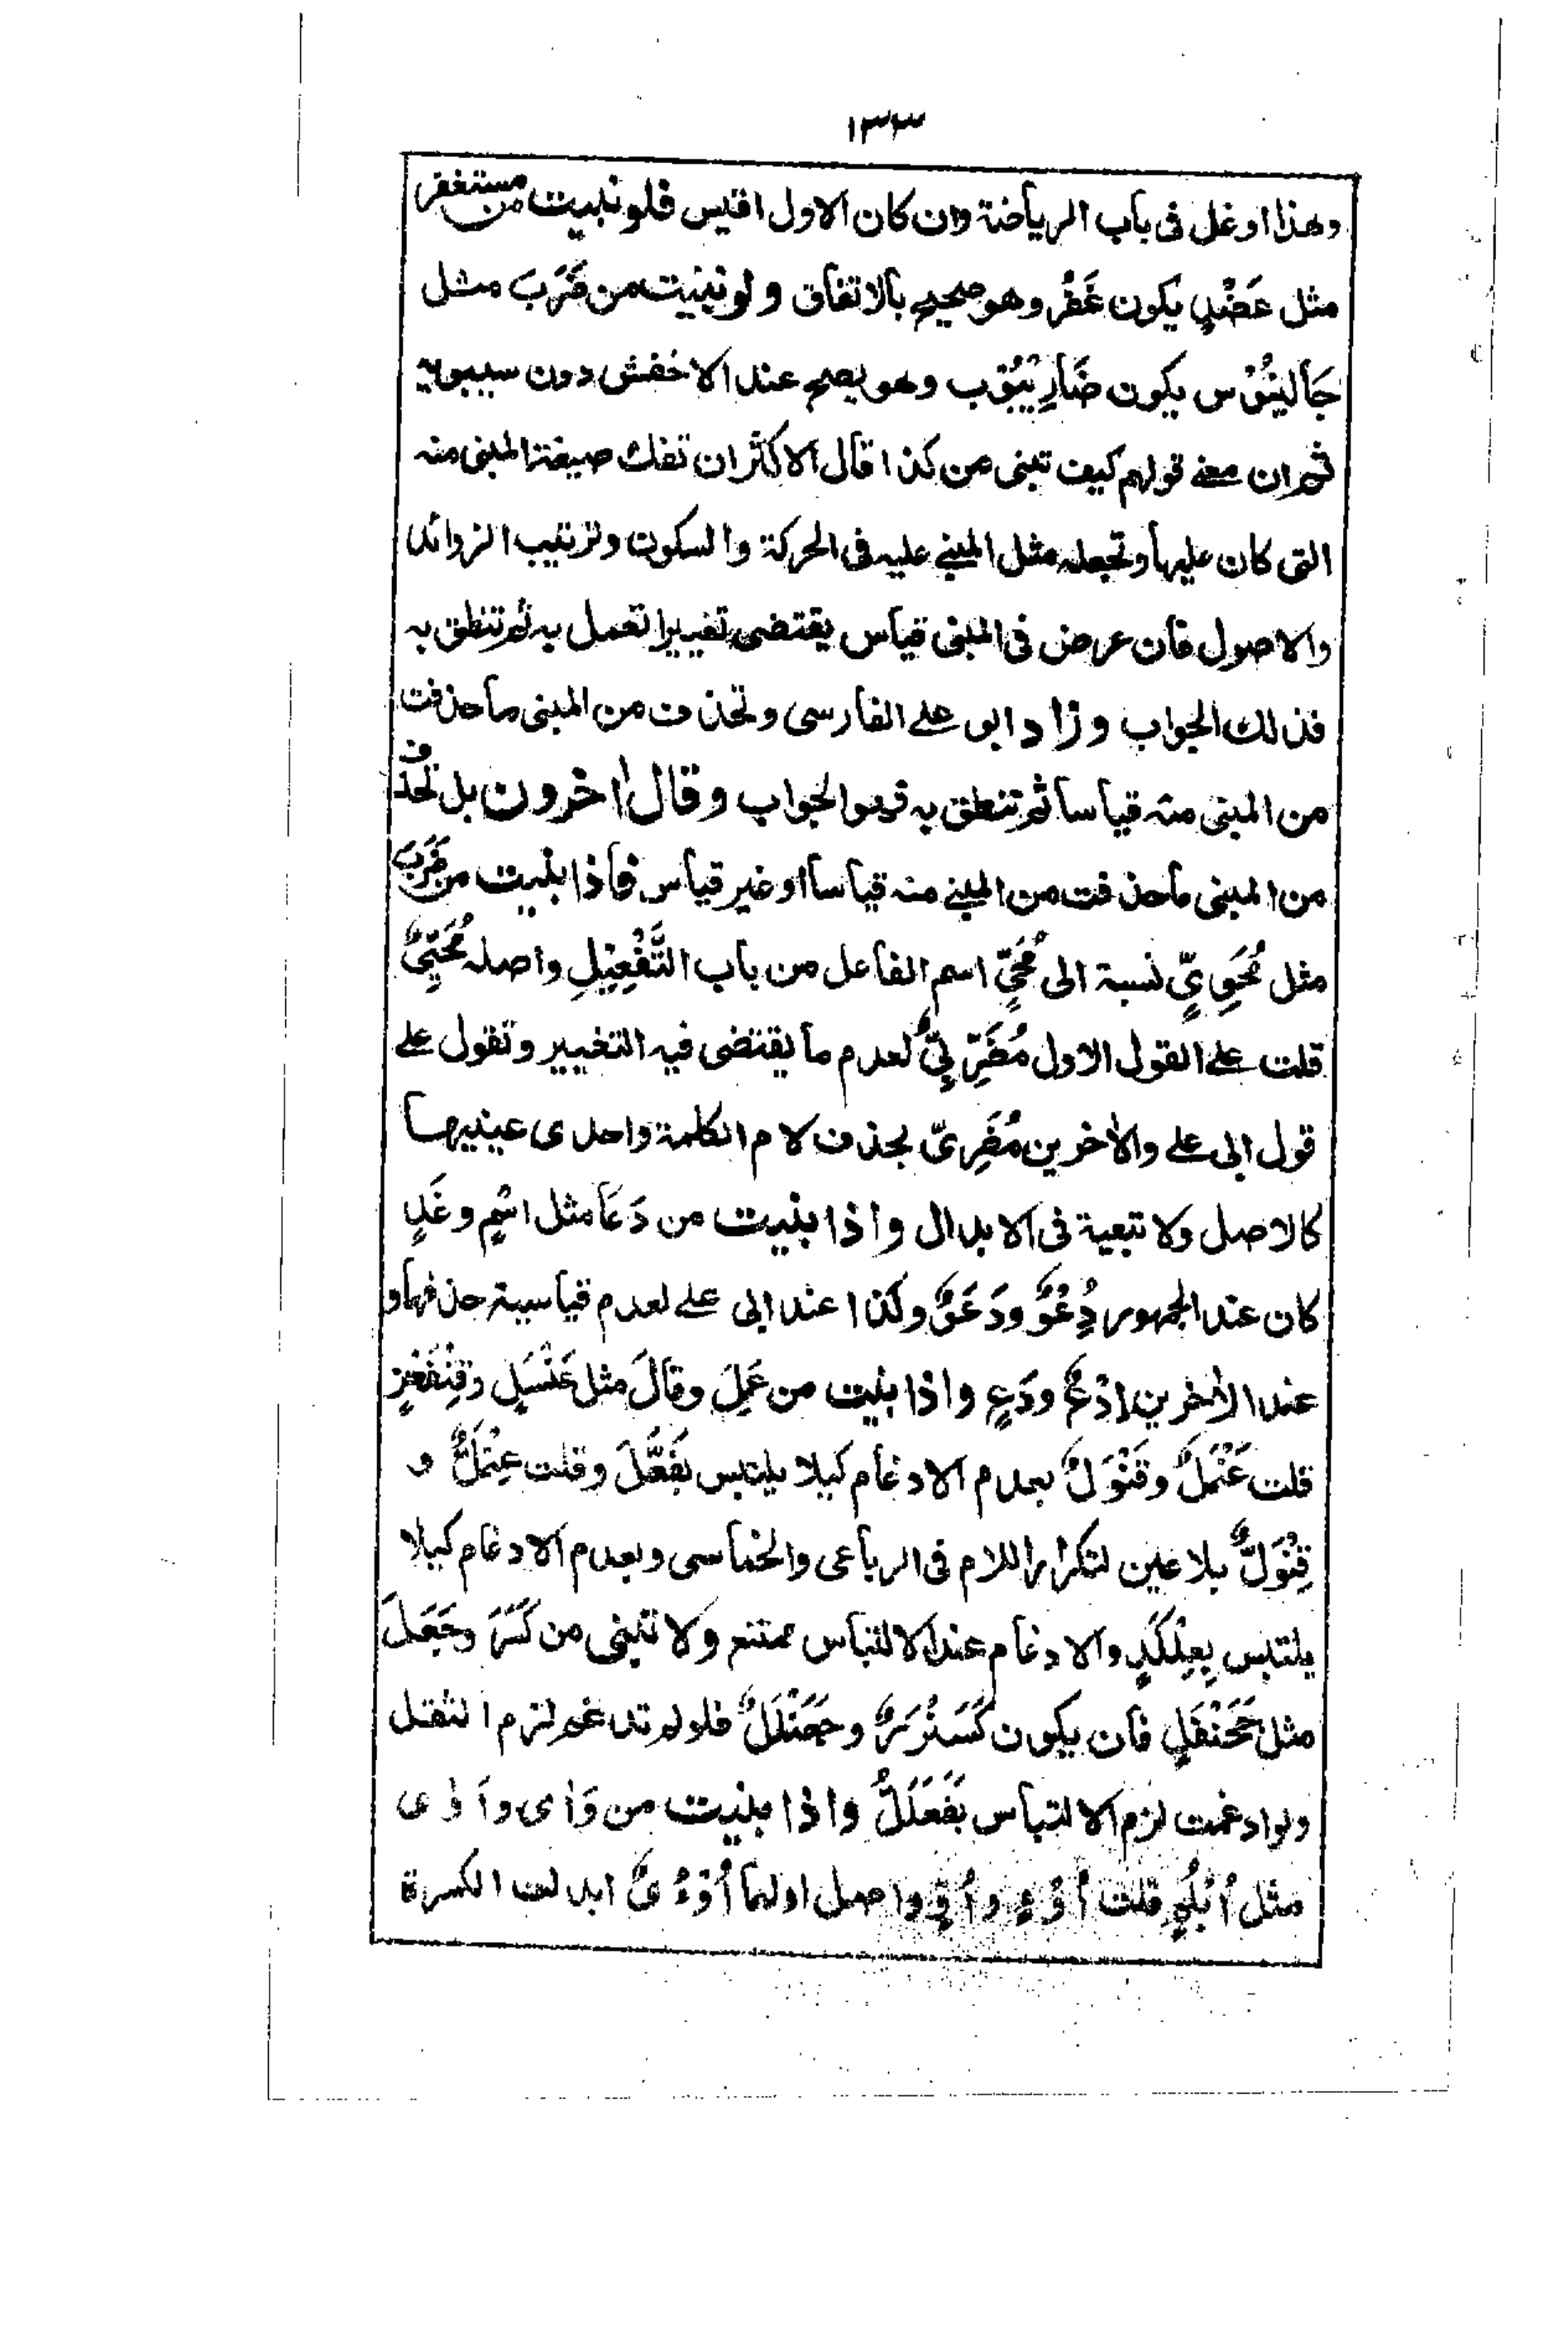 ١٣٣
وهذا اوغل فى باب الرياضة وان كان الاول اقيس فلو نبيت من مستغفر
مثل عَضُدٍ يكون غَفُرٌ وهو صحيح بالاتفاق ولو نبنيت من ضَرَبَ مثل
جَالِيْنُوْس يكون ضَارِيْبُوْب وهو يصح عند الاخفش دون سيبويه
ثم ان معنے قولهم كيف تبنى من كذا قال الاكثر ان تفك صيغة المبنى منه
التى كان عليها وتجعله مثل المبنے عليه فى الحركة والسكون وترتيب الزوائد
والاصول فان عرض فى المبنى قياس يقتضى تغييرا تعمل به ثم تنطق به
فذلك الجواب وزاد ابو علے الفارسى وتحذف من المبنى ما حذفت
من المبنى منه قياسا ثم تنطق به فهو الجواب وقال اٰخرون بل تحذف
من المبنى ما حذفت من المبنے منه قياسا او غير قياس فاذا بنيت من ضَرَبَ
مثل مُحَوِىٍّ نسبة الى مُحَىٍّ اسم الفاعل من باب التَّفْعِيْلِ واصله مُحَيِّىٌ
قلت علے القول الاول مُضَرِّبِىٌّ لعدم ما يقتضى فيه التغيير وتقول علے
قول ابى على والاٰخرين مُضَرِىٌّ بحذف لام الكلمة واحدى عينيها
كالاصل ولا تبعية فى الابدال واذا بنيت من دَعَا مثل اسْمٍ وغَدٍ
كان عند الجمهور دُِعْوٌ ودَعَوٌ وكذا عند ابى علے لعدم قياسية حذفها و
عند الاٰخرين اِدْعٌ ودَعٍ واذا بنيت من عَمِلَ وقالَ مثل عَنْسَلٍ وقِنْفَخْرٍ
قلت عَنْمَلٌ وقَنْوَلٌ بعدم الادغام كيلا يلتبس بفَعَّلَ وقلت عِنْمَلٌّ و
قِنْوَلٌّ بلا عين لتكرار اللام فى الرباعى والخماسى وبعدم الادغام كيلا
يلتبس بِعِلْكَدٍ والادغام عند الالتباس ممتنع ولا تبنى من كَسَرَ وجَعَلَ
مثل جَحَنْفَلٍ فان يكون كَسَنْرَرٌ وجَعَنْلَلٌ فلو لم تدغم لزم الثقل
ولو ادغمت لزم الالتباس بفَعَلَّلٌ واذا بنيت من وَاٰى واَوٰى
مثل اُبْلُمٍ قلت اُوْءٍ واُوٍّ واصل اولهما اُوْءُىٌ ابدلت الكسرة